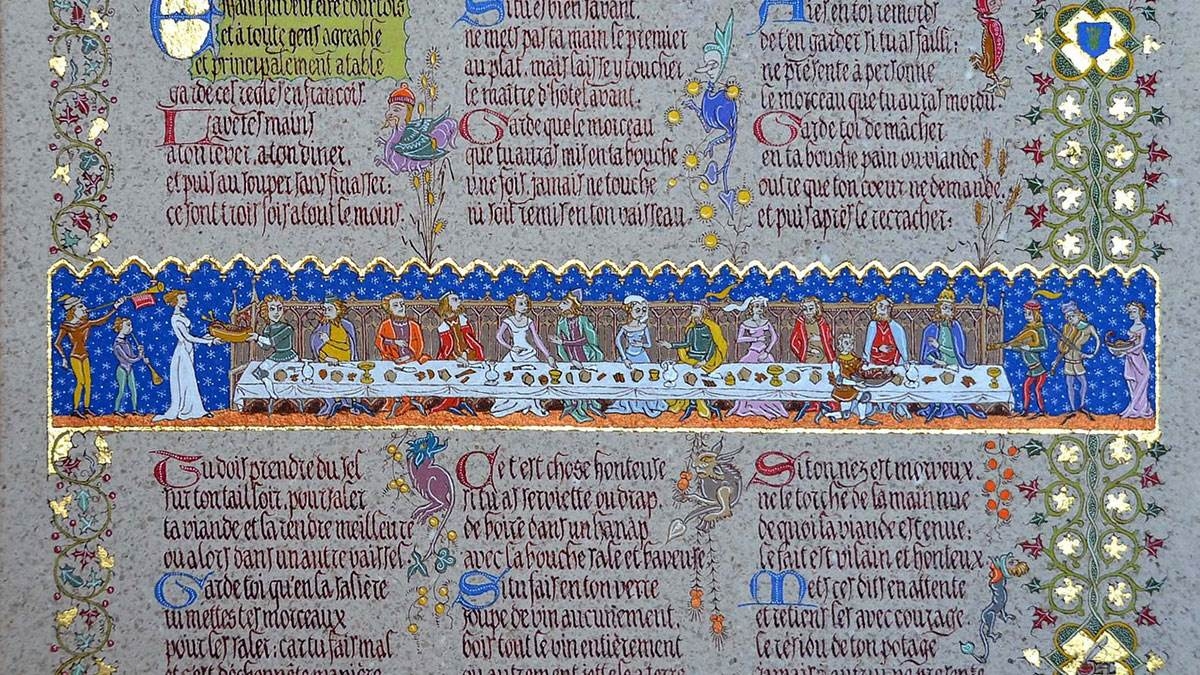 Enfant qui veut être courtois
et à toute gens agreable
et principalement a table
garde ces regles en francois.
Lave tes mains
a ton lever, a ton diner,
et puis au souper sans finasser:
ce sont trois fois a tout le moins.
Si tu es bien savant,
ne mets pas ta main le premier
au plat, mais laisse y toucher
le maître d'hôtel avant.
Garde que le morceau
que tu auras mis en ta bouche
une fois, jamais ne touche
ni soit remis en ton vaisseau.
Aies en toi remords
de t'en garder si tu as failli:
ne présente à personne
le morceau que tu auras mordu.
Garde toi de mâcher
en ta bouche pain ou viande
outre que ton coeur ne demande,
et puis après le recracher:
Tu dois prendre du sel
sur ton tailloir, pour saler
ta viande et la rendre meilleure
ou alors dans un autre vaissel.
Garde toi qu'en la salière
tu mettes tes morceaux
pour les saler: car tu fais mal
et c'est déshonnête manière
Ce t'est chose honteuse
si tu as serviette ou drap,
de boire dans un hanap
avec la bouche sale et baveuse.
Si tu fais en ton verre
soupe de vin aucunement,
bois tout le vin entièrement
ou autrement jette le a terre
Si ton nez est morveux
ne le torche de la main nue
de quoi ta viande est tenue:
le fait est vilain et honteux
Mets ces dits en attente
et retiens les avec courage
le résidu de ton potage
jamais à autrui ne présente